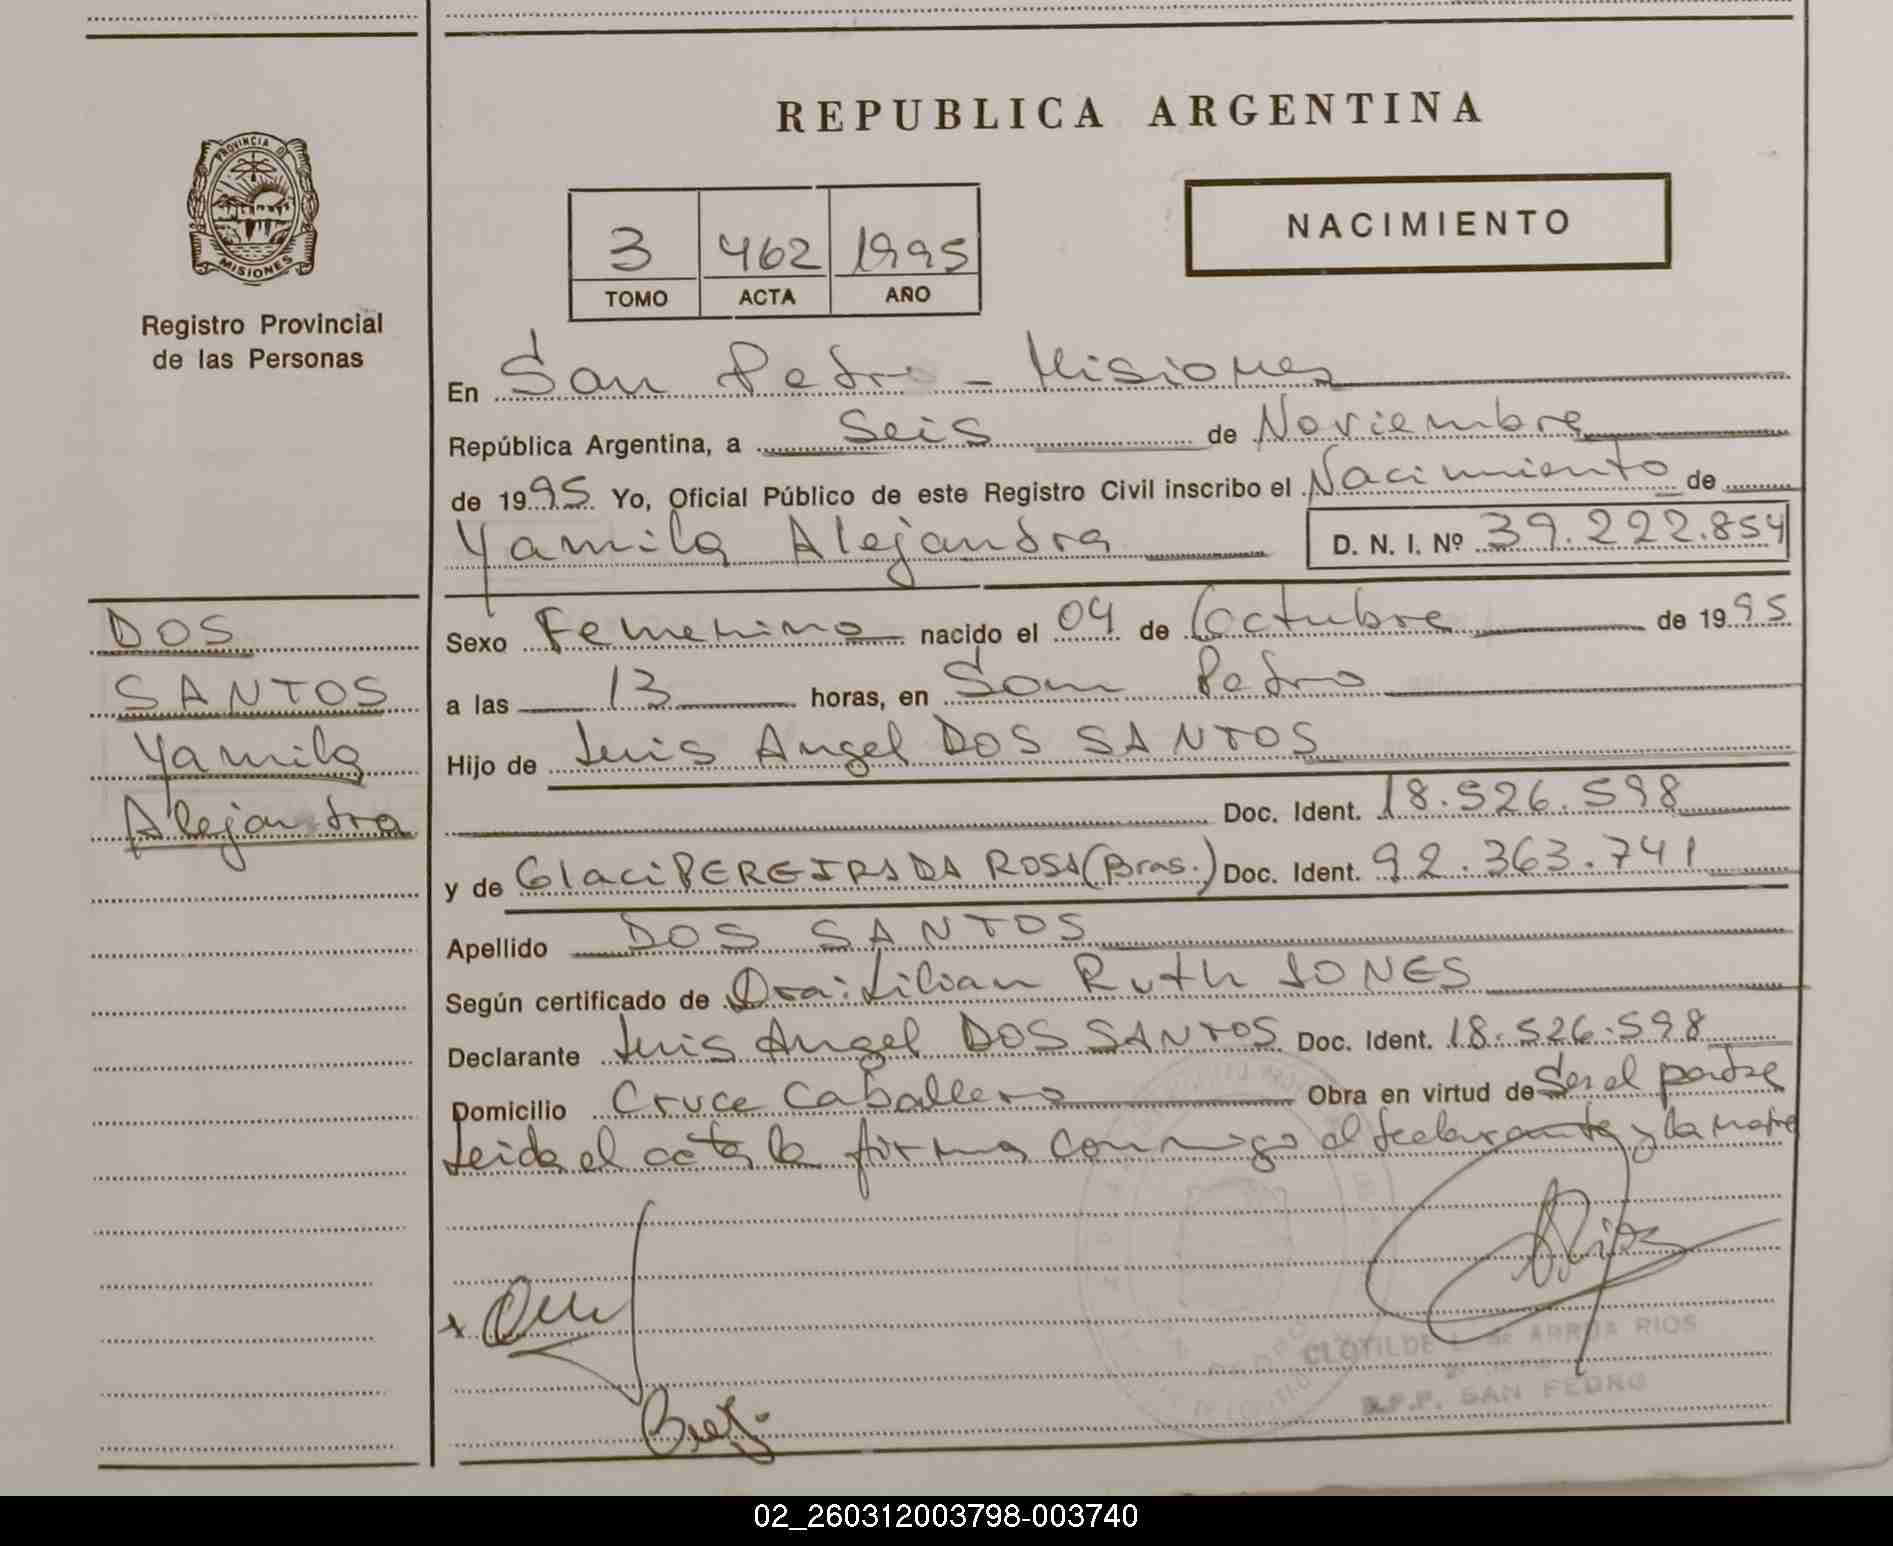 REPUBLICA ARGENTINA
PROVINCIA DE
MISIONES
Registro Provincial
de las Personas
NACIMIENTO
3 462 1995
TOMO ACTA AÑO
En San Pedro - Misiones
República Argentina, a Seis de Noviembre
de 1995 Yo, Oficial Público de este Registro Civil inscribo el Nacimiento de
Yamila Alejandra D. N. I. Nº 39.222.854
DOS
SANTOS
Yamila
Alejandra
Sexo Femenino nacido el 04 de Octubre de 1995
a las 13 horas, en San Pedro
Hijo de Luis Angel DOS SANTOS
Doc. Ident. 18.526.598
y de Glaci PEREIRA DA ROSA (Bras.) Doc. Ident. 92.363.741
Apellido DOS SANTOS
Según certificado de Dra: Lilian Ruth JONES
Declarante Luis Angel DOS SANTOS Doc. Ident. 18.526.598
Domicilio Cruce Caballero Obra en virtud de Ser el padre
Leida el acta la firma conmigo el declarante y la madre
CLOTILDE L. de ARRUA RIOS
R.P.P. SAN PEDRO
02_260312003798-003740